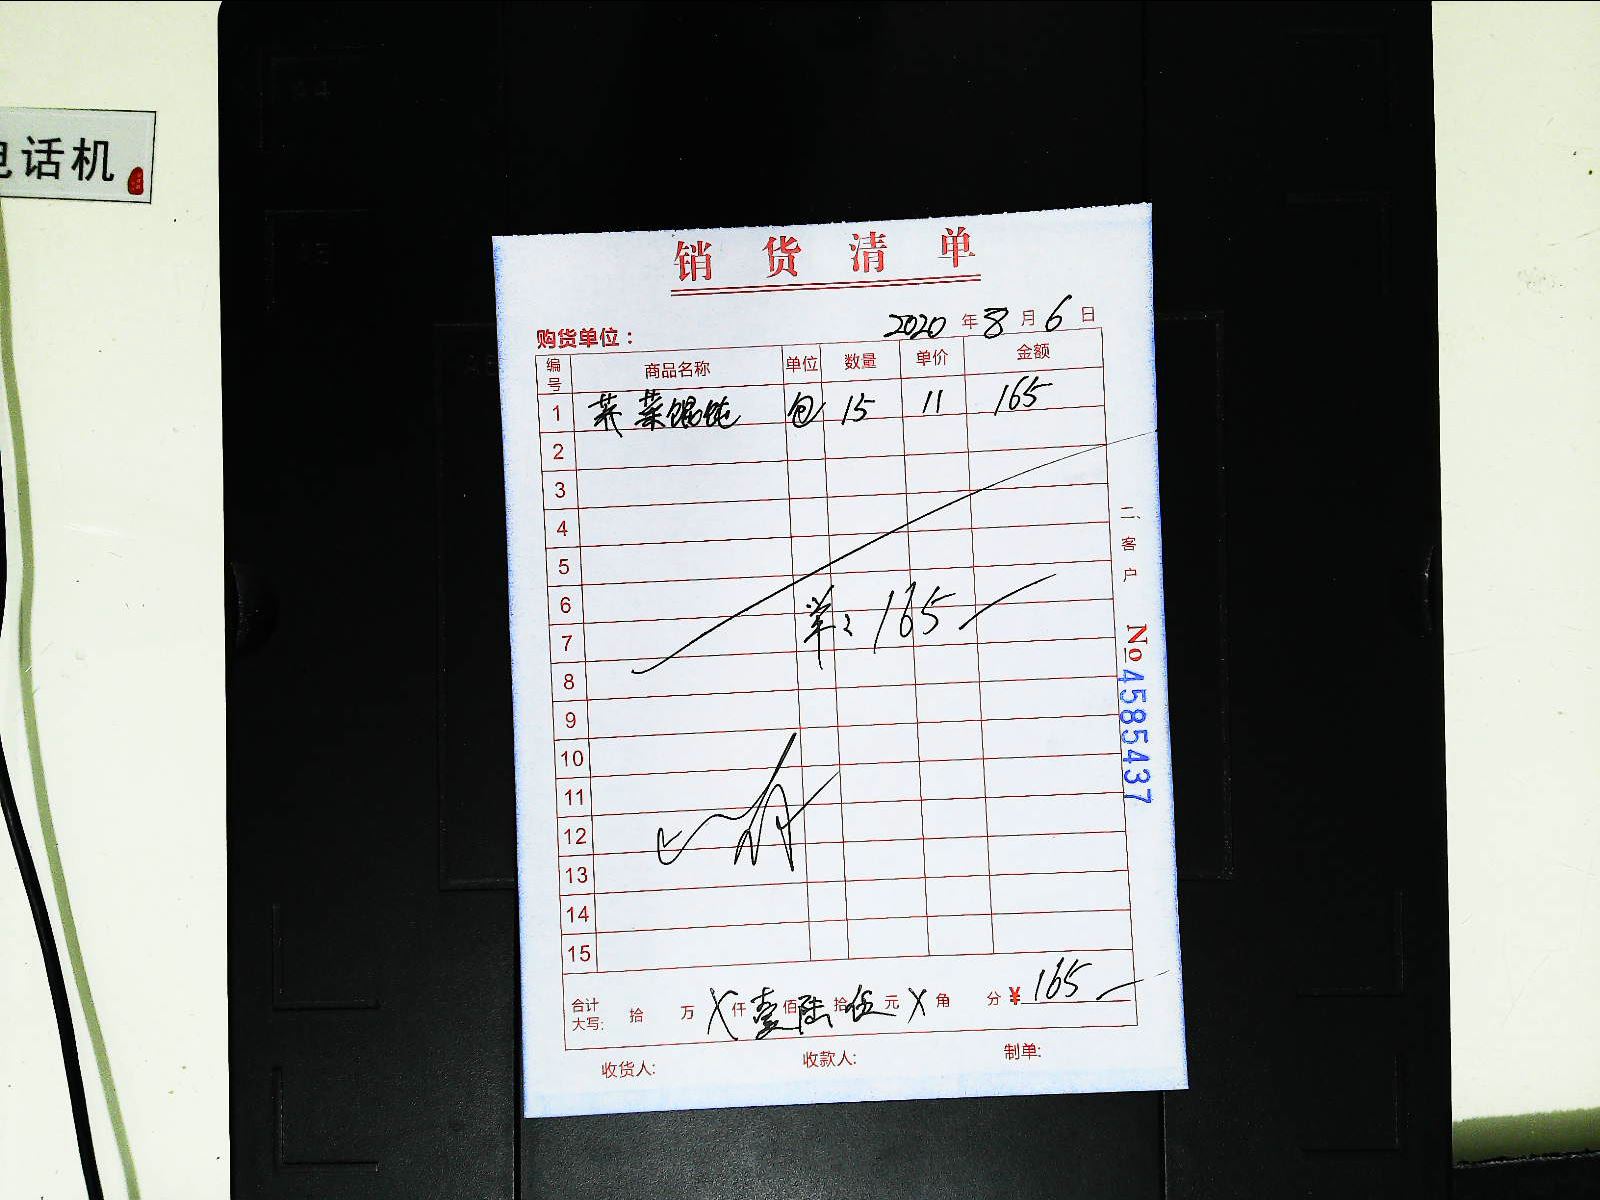 电话机
销货清单
购货单位： 2020年8月6日
编号 商品名称 单位 数量 单价 金额
1 荠菜馄饨 包 15 11 165
2
3
4
5
6
7
165
8
9
10
11
12
13
14
15
合计大写: 拾 万 X仟壹佰陆拾伍元X角 分¥165
收货人: 收款人: 制单:
二、客户
No4585437